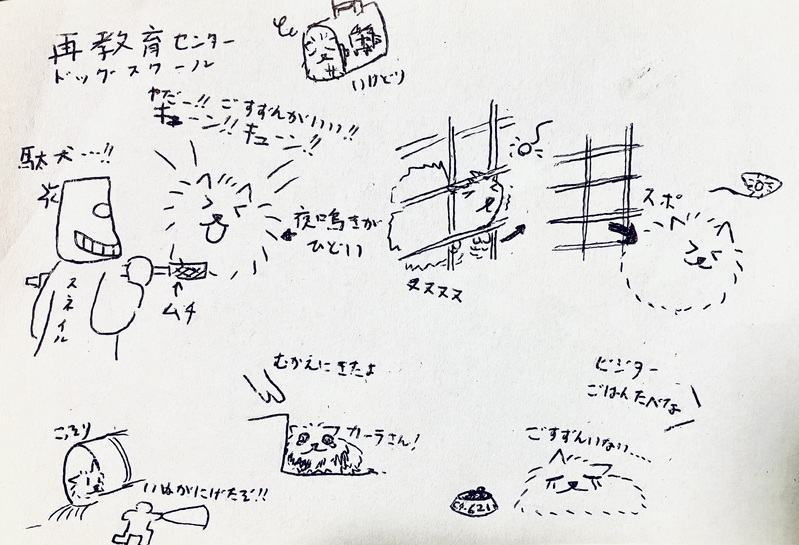 再教育センター
ドッグスクール
いけどり
やだー!! ごすずんがいい!!
キューン!! キューン!!
駄犬…!!
夜鳴きが
ひどい
ムチ
スネイル
ヌススス
スポ
むかえにきたよ
カーラさん!
ビジター
ごはんたべな
ごすずんいない……
こっそり
いぬがにげたぞ!!